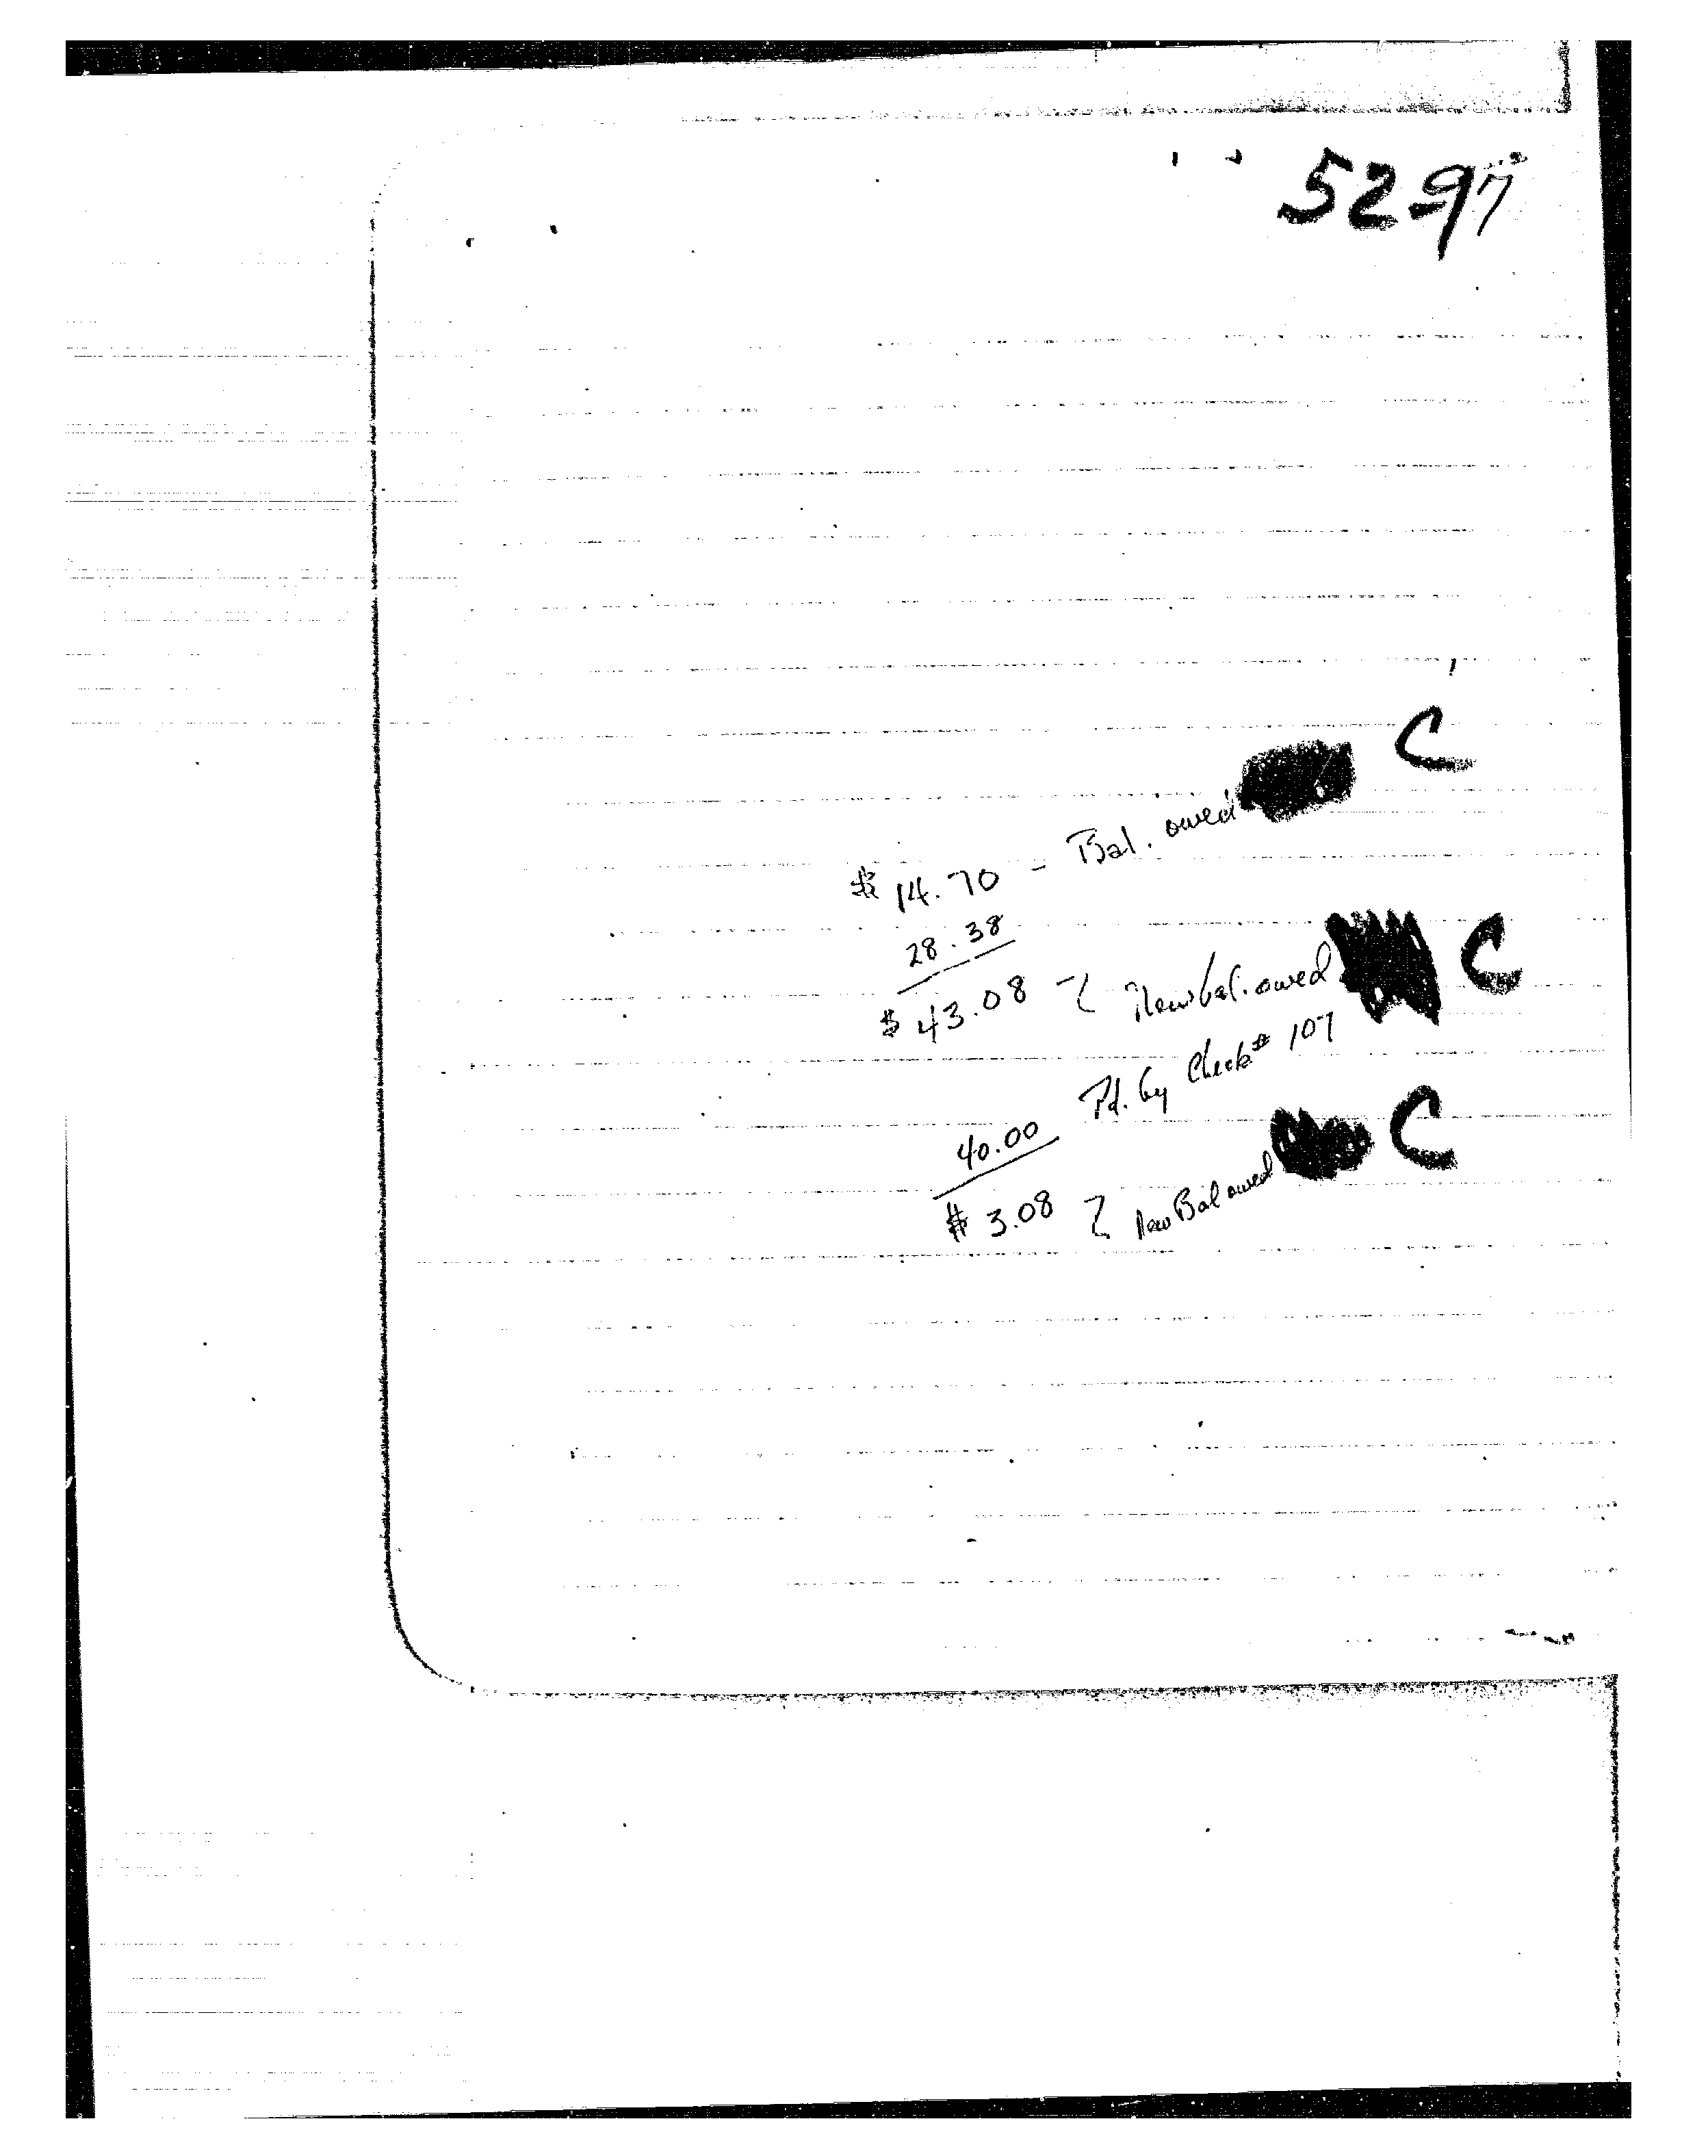 5297
C
$ 14.70 - Bal. owed
28.38
$ 43.08 New bal. owed C
40.00 Pd. by Check # 107
$ 3.08 New Bal owed C